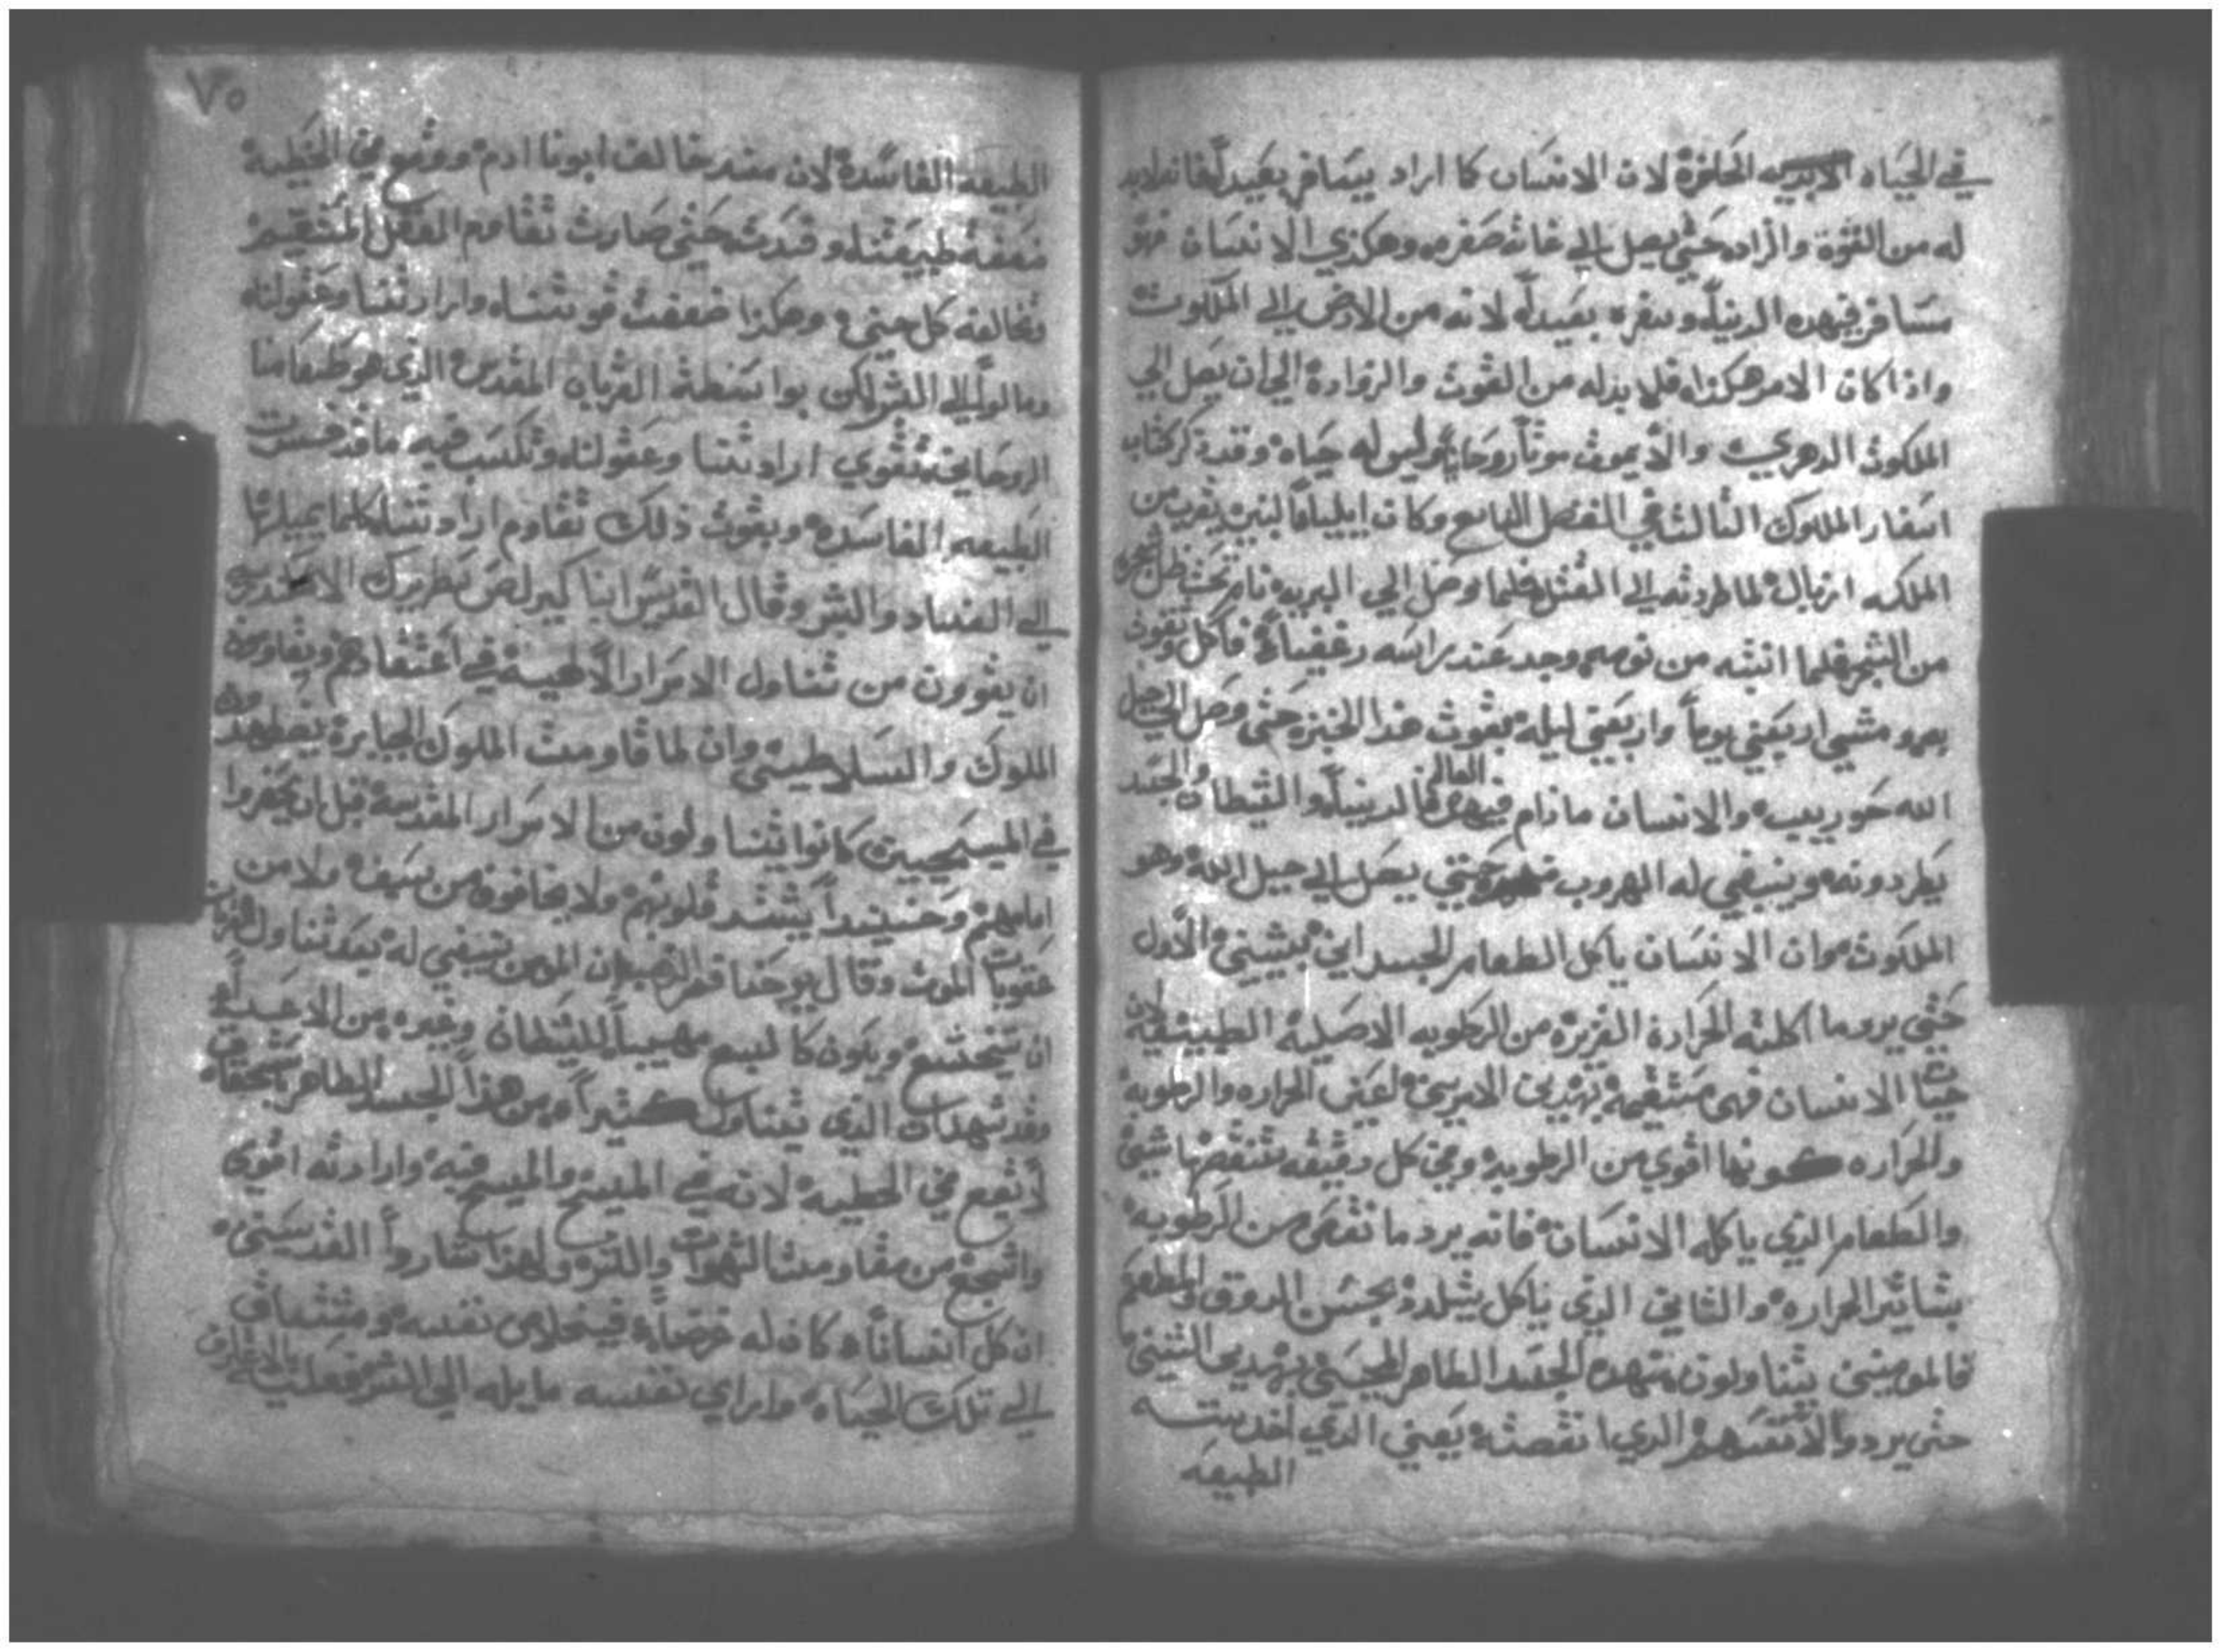 في الحياه الحاضرة لان الانسان كا اراد يسافر بعيداً فانه لابد
له من القوة والزاد حتي يصل الي غاية صفره وهكذي الانسان فهو
مسافر فيهده الدنيا وسفره بعيداً لانه من الارض الي الملكوت
واذا كان الامر هكذا فلا بد له من القوت والزوادة الي ان يصل الي
الملكوت الدهري والا يموت موتاً روحانياً وليس له حياه وقد ذكر كتاب
اسفار الملوك الثالث في الفصل التاسع وكان ايلياء النبي يهرب من
الملكه ازبال لما طردته الي القتل فلما وصل الي البريه نام تحت ظل شجره
من الشجر فلما انتبه من نومه وجد عند راسه رغفياً فاكل وتقوت
به ومشي اربعين يوماً واربعين ليله بقوت هذا الخبزه حتي وصل الي جبل
الله حوريب والانسان مادام فيهده العالم الدنيا والشيطان والجسد
يطردونه وينبغي له الهروب حتي يصل الي جبل الله وهو
الملكوت وان الانسان ياكل الطعام الجسداني الاول
حتي يرد ما اكلته الحرارة الغريزه من الرطوبه الاصلية الطبيعية لان
حياة الانسان فهي مستقيمة بهدين الامرين يعني الحراره والرطوبة
والحراره كونها اقوي من الرطوبة وفي كل دقيقه تنقصها شي
والطعام الذي ياكله الانسان فانه يرد ما نقص من الرطوبه
بتاتير الحراره والثاني الذي ياكل يتلدد بحسن الدوق والمطعم
فالمومنين يتناولون بهده الجسد الطاهر المحيي بهدين الشيين
حتي يردوا لانفسهم الذي انقصته يعني الذي اخدته
الطبيعه
٧٥
الطبيعة الفاسدة لان منذ خالف ابونا ادم ووقع في الخطية
ضعفة طبيعتنا وفسدت حتي صارت تقاوم العقل المستقيم
تخالفه كل حين وهكذا ضعفت قوتنا وارادتنا وعقولنا
ومالوا الي الشر لكن بواسطة القربان المقدس الذي هو طعامنا
الروحاني تتقوي ارادتنا وعقولنا وتكسب فيه ما قد خسرت
الطبيعه الفاسده وبقوت ذلك تقاوم ارادتنا كلما يميلها
الي الفساد والشر وقال القديس انبا كيرلص بطريرك الاسكندريه
ان يقوون من تناول الاسرار الالهية في اعتقادهم ويقاومون
الملوك والسلاطين وان لما قاومت الملوك الجبابرة يضطهدون
في المسيحيين كانوا يتناولون من الاسرار المقدسة قبل ان يحضروا
امامهم وحينيداً يشتد قلوبهم ولا يخافون من سيف ولا من
عقوبات الموت وقال يوحنا فم الذهب ان المومن ينبغي له بعد تناول القربان
ان يتخشع ويكون كالسبع مهيباً للشيطان وغيره من الاعداء
وقد شهدات الذي يتناول كثيراً من هذا الجسد الطاهر باستحقاق
لا يقع في الخطية لانه في المسيح والمسيح فيه وارادته اقوي
واشجع من مقاومت الشهوات والشر ولهذا شاروا القديسين
ان كل انساناً كان له خرصاً في خلاص نفسه ومشتاق
الي تلك الحياه واراي نفسه مايله الي الشر فعليه